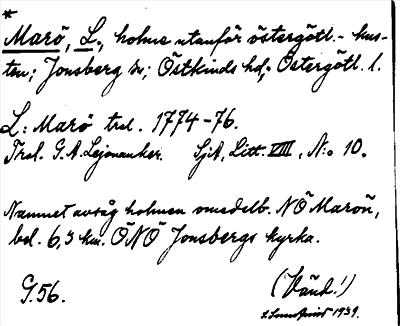 *
Marö, L., holme utanför östergötl.-kus-
ten; Jonsberg sn; Östkinds hd, Östergötl. l.
L: Marö trol. 1774-76.
Trol. G. A. Lejonanker. SjA, Litt. VIII, N:o 10.
Namnet avsåg holmen omedelb. NÖ Marön,
bel. 6,5 km. ÖNÖ Jonsbergs kyrka.
G.56.
(Vänd!)
1939.